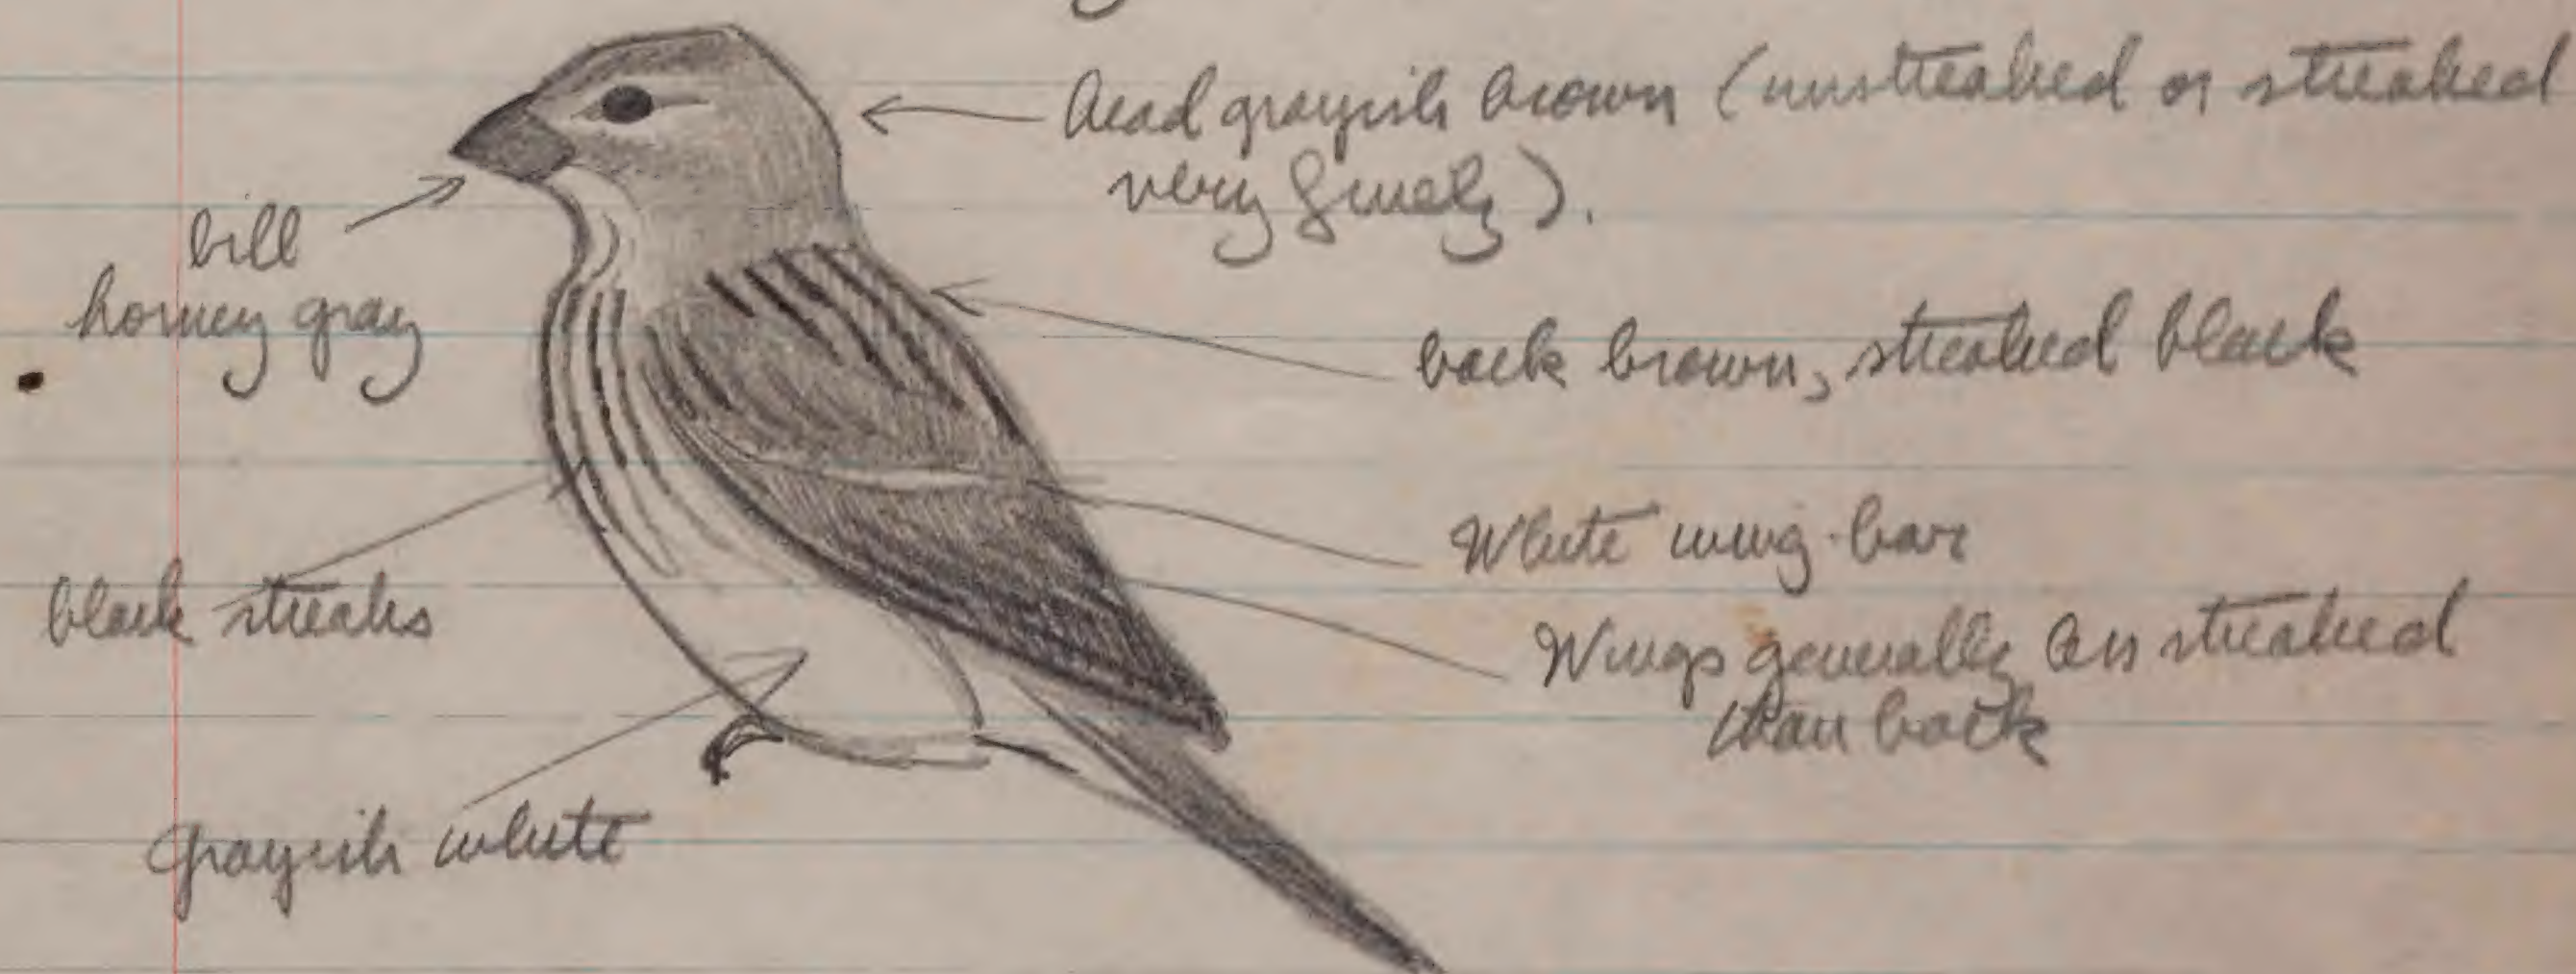 head grayish brown (unstreaked or streaked
very finely).
bill
horney gray
back brown, streaked black
White wing-bar
black streaks
Wings generally less streaked
than back
grayish white